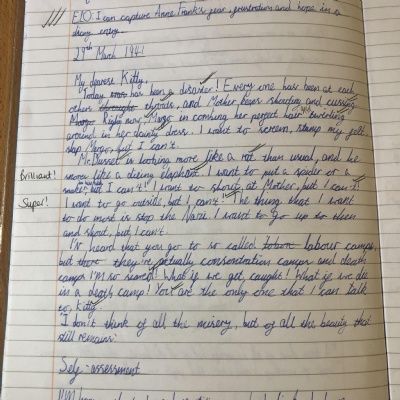 ELO: I can capture Anne Frank's fear, frustration and hope in a
diary entry.
29th March 1941
My dearest Kitty,
Today has been a disaster! Every one has been at each
others throats, and Mother keeps shouting and cussing.
Right now, Margo in combing her perfect hair twirling
around in her dainty dress. I want to scream, stamp my feet
slap Margo, but I can't.
Mr. Dussel is looking more like a rat than usual, and he
more like a dieing elephant. I want to put a spider or a
but I can't! I want to shout at Mother, but I can't!
Brilliant!
I want to go outside, but I can't! The thing that I want
Super!
to do most is stop the Nazi. I want to go up to them
and shout, but I can't.
I've heard that you go to so called labour camps,
but they're actually consontration camps and death
camps I'm so scared! What if we get caught! What if we die
in a death camp! You are the only one that I can talk
to, Kitty.
"I don't think of all the misery, but of all the beauty that
still remains."
Self-assessment